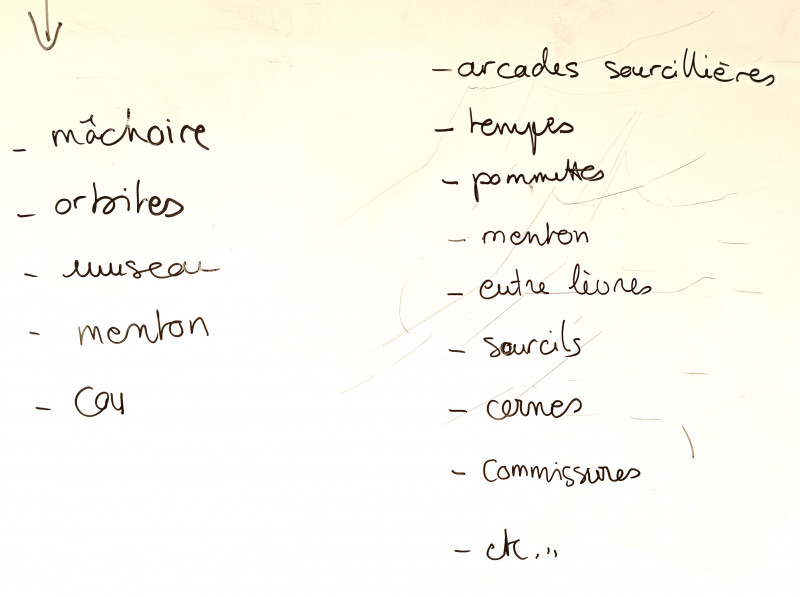 - mâchoire
- orbites
- museau
- menton
- Cou
- arcades sourcillières
- tempes
- pommettes
- menton
- entre lèvres
- sourcils
- cernes
- Commissures
- etc...